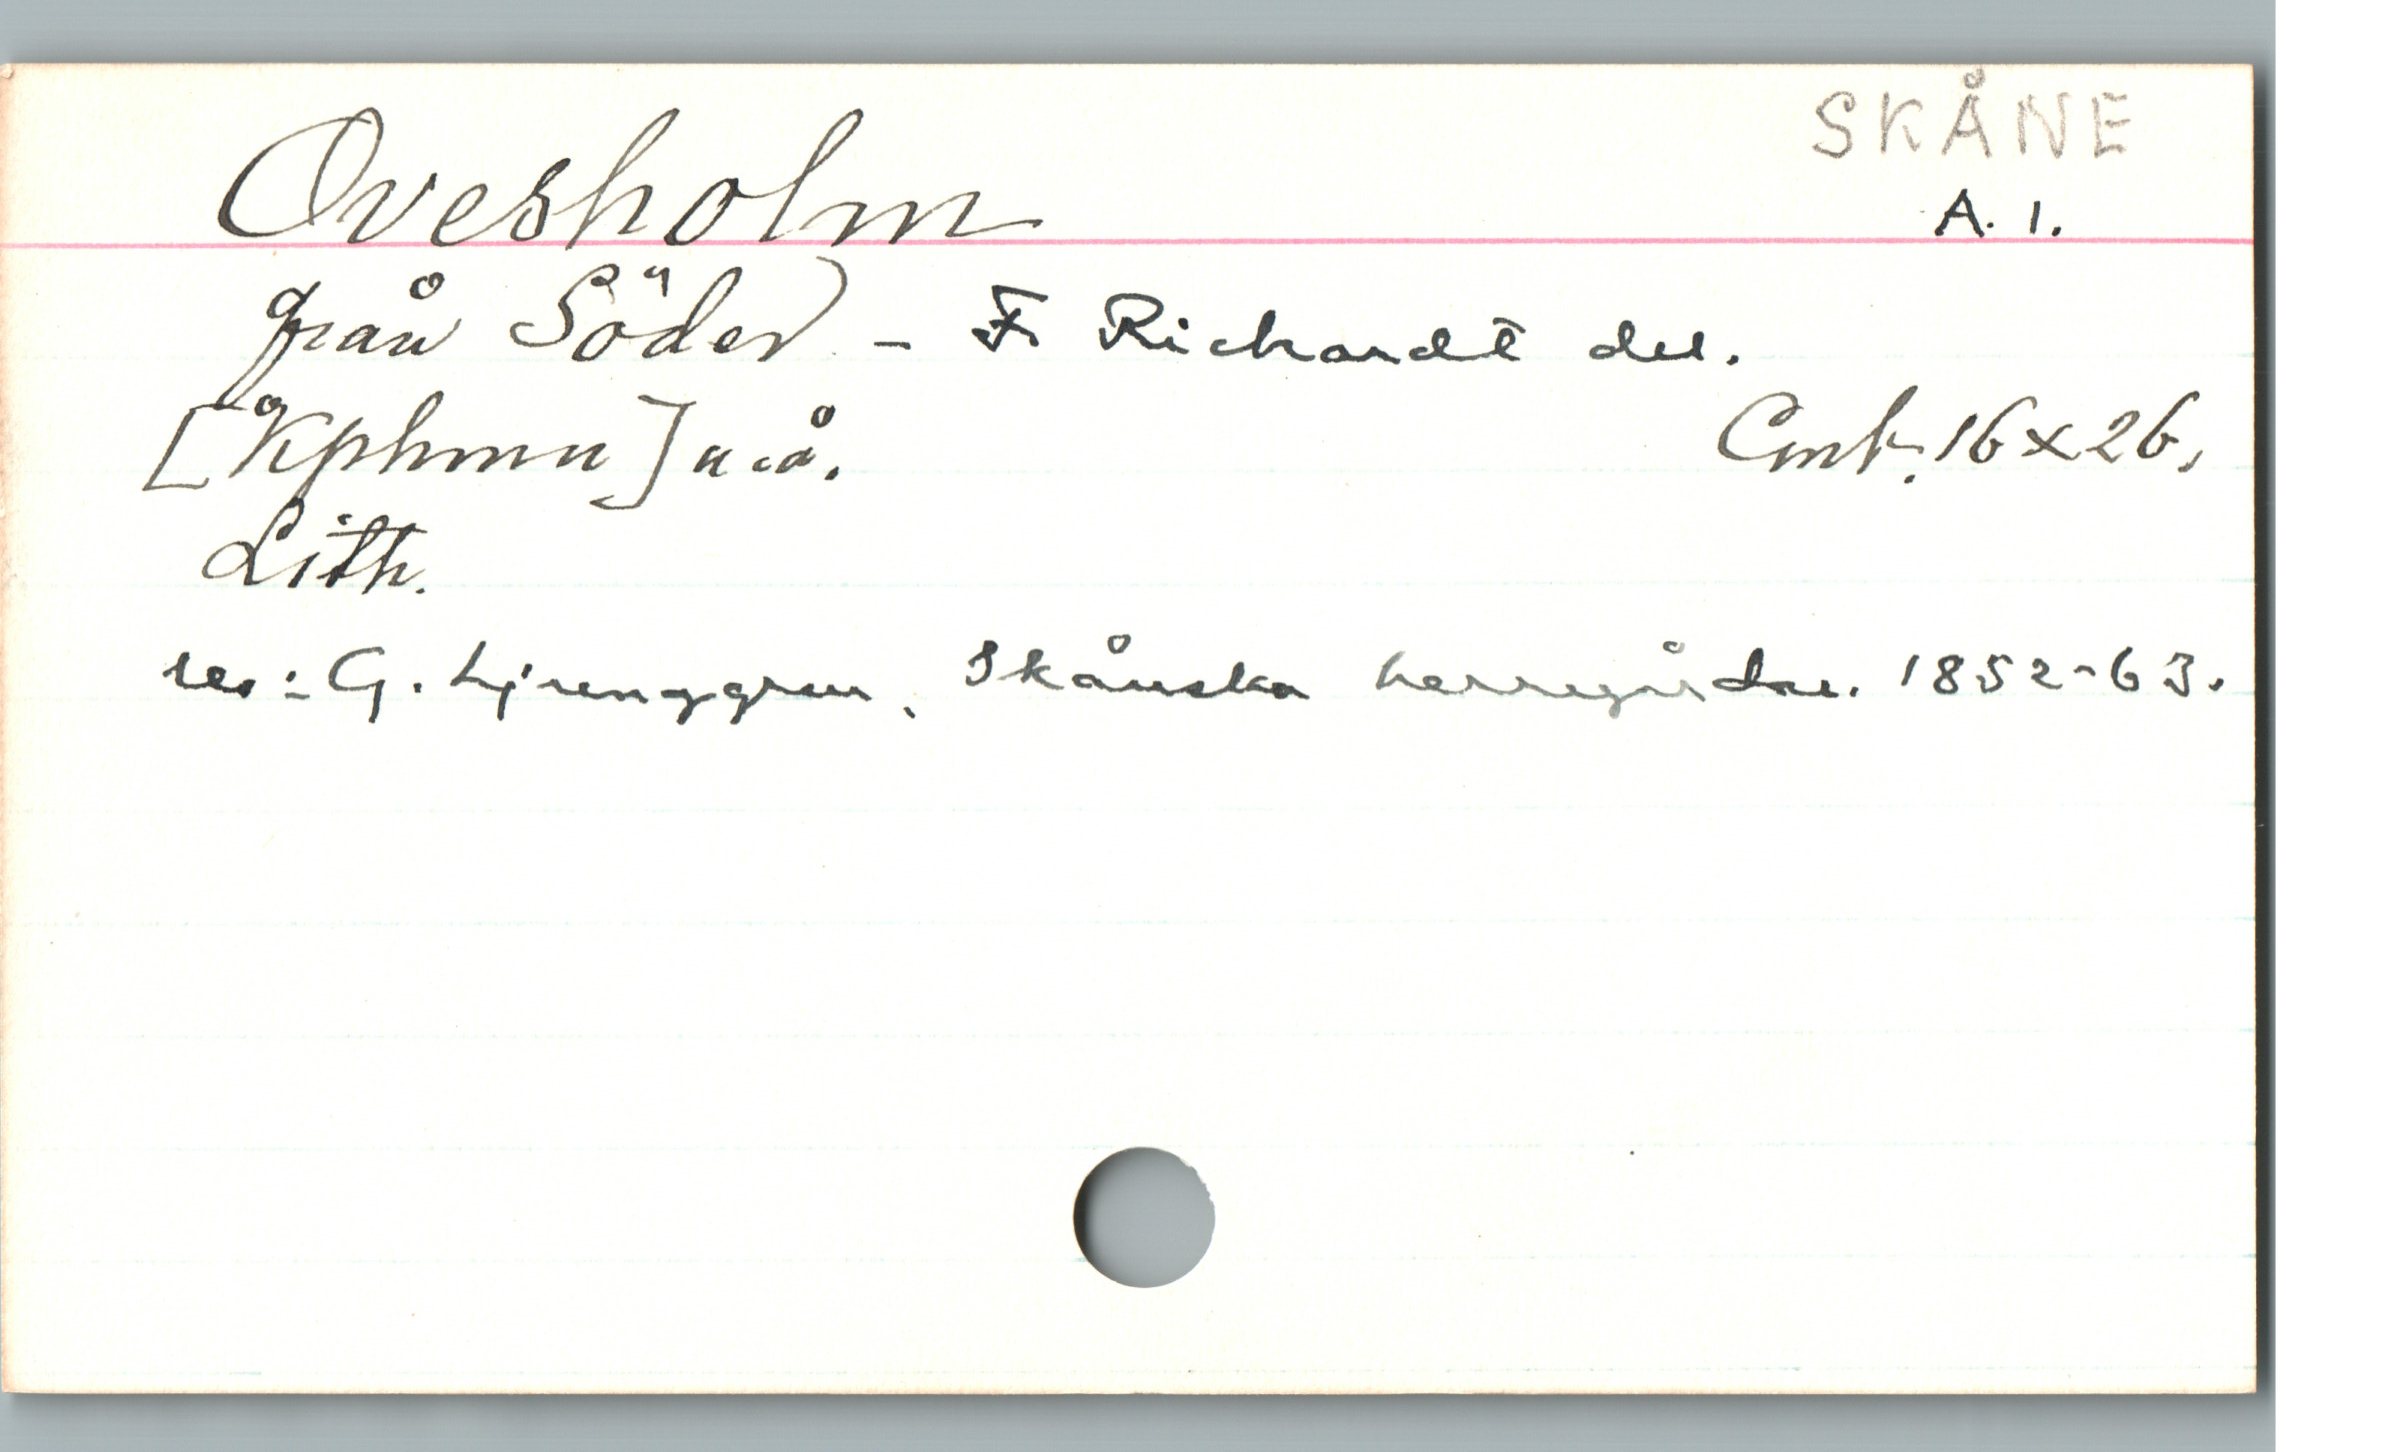 SKÅNE
Ovesholm
A. 1.
från Söder - F Richardt del.
[Kphmn] u.å.
Cmt. 16 x 26.
Lith.
G. Ljunggren, Skånska herregårdar. 1852-63.